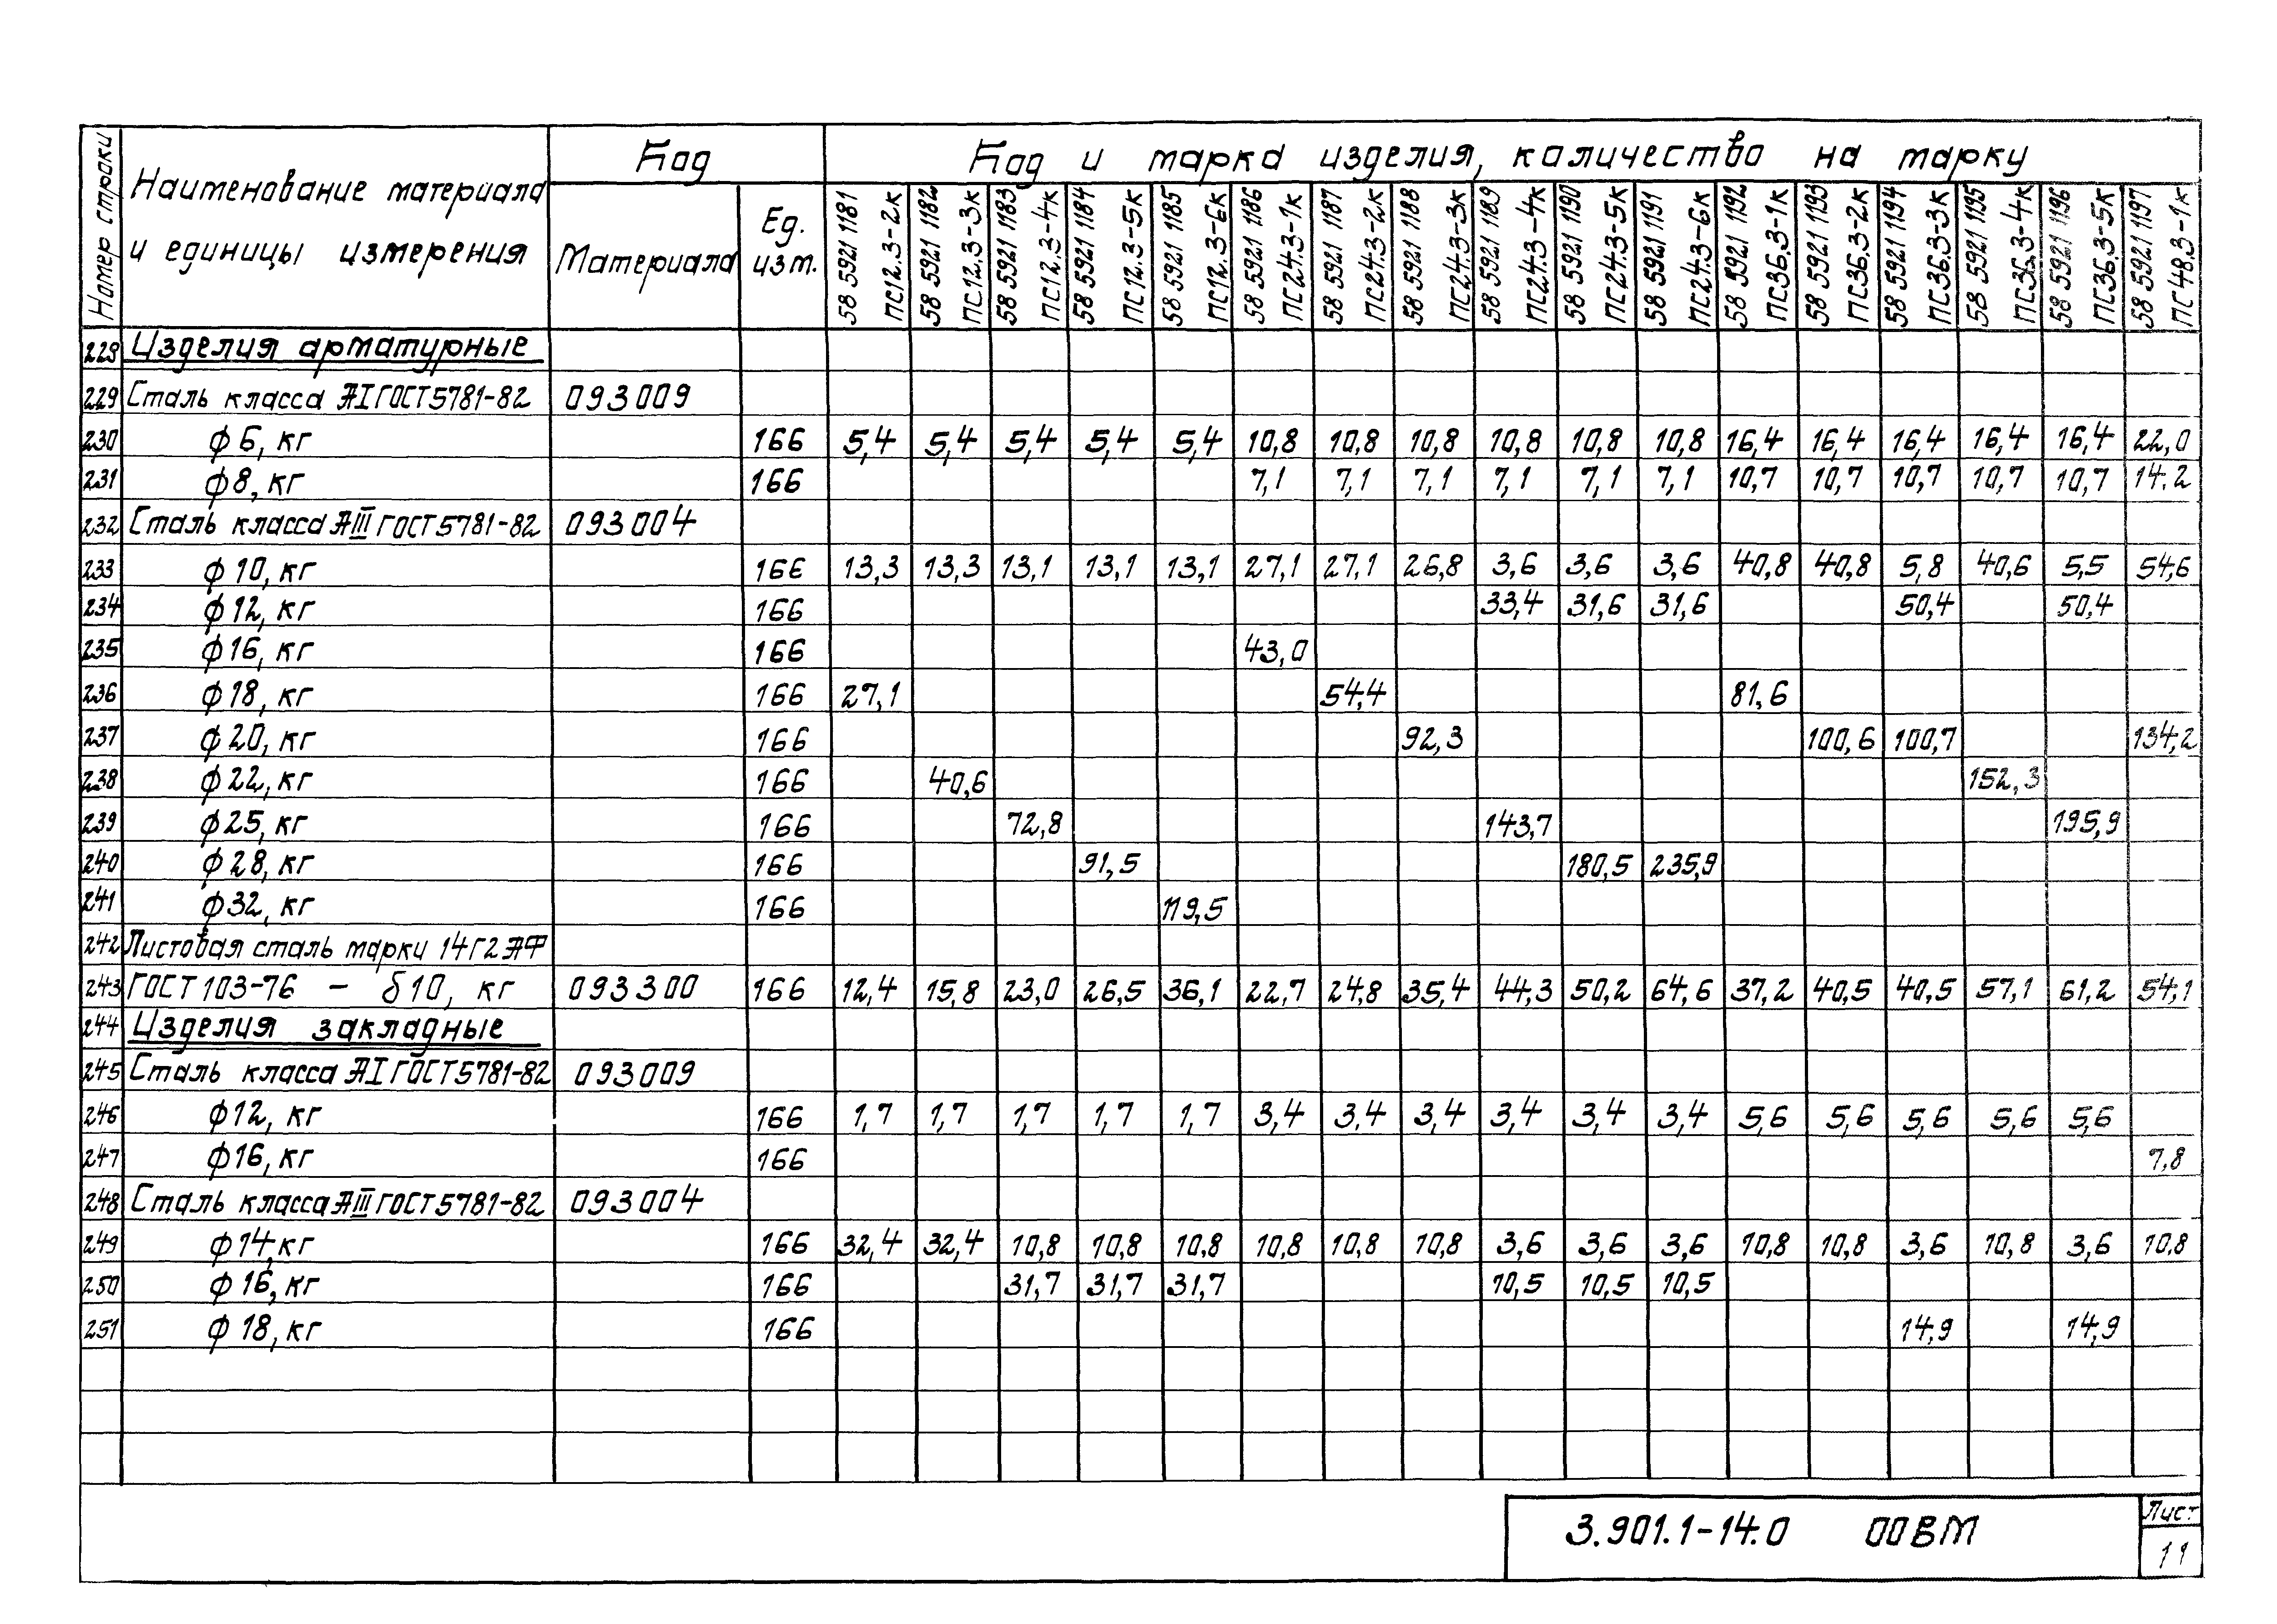 Номер строки
Наименование материала
и единицы измерения
Код
Материала
Ед.
изм.
Код и марка изделия, количество на марку
58 5921 1181 ПС12.3-2к
58 5921 1182 ПС12.3-3к
58 5921 1183 ПС12.3-4к
58 5921 1184 ПС12.3-5к
58 5921 1185 ПС12.3-6к
58 5921 1186 ПС24.3-1к
58 5921 1187 ПС24.3-2к
58 5921 1188 ПС24.3-3к
58 5921 1189 ПС24.3-4к
58 5921 1190 ПС24.3-5к
58 5921 1191 ПС24.3-6к
58 5921 1192 ПС36.3-1к
58 5921 1193 ПС36.3-2к
58 5921 1194 ПС36.3-3к
58 5921 1195 ПС36.3-4к
58 5921 1196 ПС36.3-5к
58 5921 1197 ПС48.3-1к
228 Изделия арматурные
229 Сталь класса АI ГОСТ5781-82 093009
230 ф6, кг 166 5,4 5,4 5,4 5,4 5,4 10,8 10,8 10,8 10,8 10,8 10,8 16,4 16,4 16,4 16,4 16,4 22,0
231 ф8, кг 166 7,1 7,1 7,1 7,1 7,1 7,1 10,7 10,7 10,7 10,7 10,7 14.2
232 Сталь класса АIII ГОСТ5781-82 093004
233 ф10, кг 166 13,3 13,3 13,1 13,1 13,1 27,1 27,1 26,8 3,6 3,6 3,6 40,8 40,8 5,8 40,6 5,5 54,6
234 ф12, кг 166 33,4 31,6 31,6 50,4 50,4
235 ф16, кг 166 43,0
236 ф18, кг 166 27,1 54,4 81,6
237 ф20, кг 166 92,3 100,6 100,7 134,2
238 ф22, кг 166 40,6 152,3
239 ф25, кг 166 72,8 143,7 195,9
240 ф28, кг 166 91,5 180,5 235,9
241 ф32, кг 166 119,5
242 Листовая сталь марки 14Г2АФ
243 ГОСТ103-76 - δ10, кг 093300 166 12,4 15,8 23,0 26,5 36,1 22,7 24,8 35,4 44,3 50,2 64,6 37,2 40,5 40,5 57,1 61,2 54,1
244 Изделия закладные
245 Сталь класса АI ГОСТ5781-82 093009
246 ф12, кг 166 1,7 1,7 1,7 1,7 1,7 3,4 3,4 3,4 3,4 3,4 3,4 5,6 5,6 5,6 5,6 5,6
247 ф16, кг 166 7,8
248 Сталь класса АIII ГОСТ5781-82 093004
249 ф14, кг 166 32,4 32,4 10,8 10,8 10,8 10,8 10,8 10,8 3,6 3,6 3,6 10,8 10,8 3,6 10,8 3,6 10,8
250 ф16, кг 166 31,7 31,7 31,7 10,5 10,5 10,5
251 ф18, кг 166 14,9 14,9
3.901.1-14.0 00ВМ
Лист
11